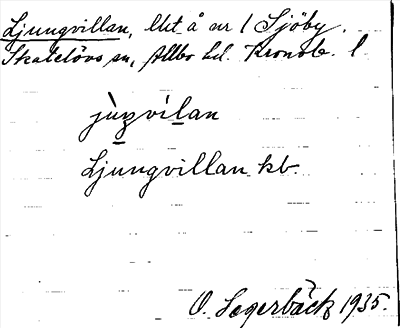 Ljungvillan, lht å nr 1 Sjöby.
Skatelövs sn, Allbo hd. Kronob. l.
jùŋvílan
Ljungvillan kb.
O. Segerbäck 1935.